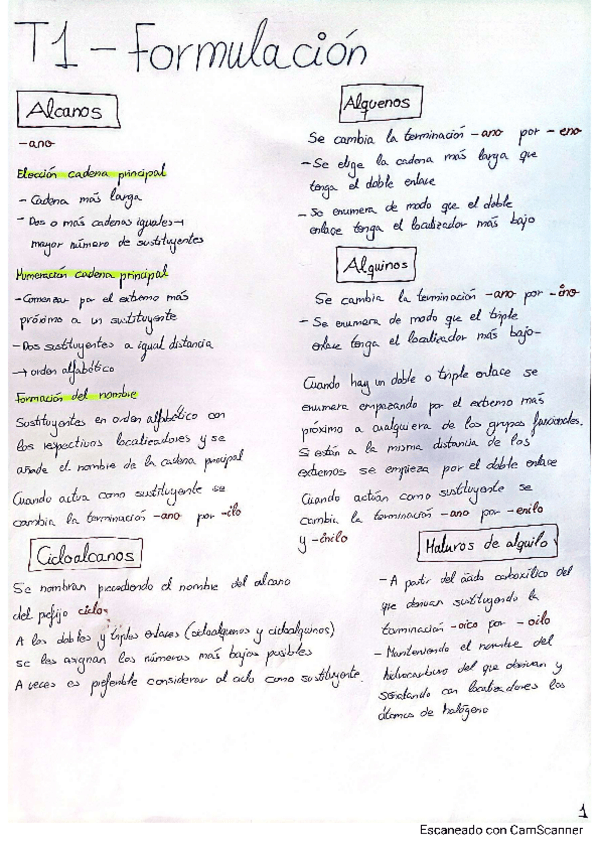 T1 - Formulación
Alcanos
-ano
Elección cadena principal
- Cadena más larga
- Dos o más cadenas iguales →
mayor número de sustituyentes
Numeración cadena principal
- Comenzar por el extremo más
próximo a un sustituyente
- Dos sustituyentes a igual distancia
→ orden alfabético
Formación del nombre
Sustituyentes en orden alfabético con
los respectivos localizadores y se
añade el nombre de la cadena principal
Cuando actua como sustituyente se
cambia la terminación -ano por -ilo
Cicloalcanos
Se nombran precediendo el nombre del alcano
del prefijo ciclo-
A los dobles y triples enlaces (cicloalquenos y cicloalquinos)
se les asignan los números más bajos posibles
A veces es preferible considerar al ciclo como sustituyente.
Alquenos
Se cambia la terminación -ano por -eno
- Se elige la cadena más larga que
tenga el doble enlace
- Se enumera de modo que el doble
enlace tenga el localizador más bajo
Alquinos
Se cambia la terminación -ano por -ino
- Se enumera de modo que el triple
enlace tenga el localizador más bajo-
Cuando hay un doble o triple enlace se
enumera empezando por el extremo más
próximo a cualquiera de los grupos funcionales.
Si están a la misma distancia de los
extremos se empieza por el doble enlace
Cuando actúan como sustituyente se
cambia la terminación -ano por -enilo
y -inilo
Haluros de alquilo
- A partir del ácido carboxílico del
que derivan sustituyendo la
terminación -oico por -oilo
- Manteniendo el nombre del
hidrocarburo del que derivan y
señalando con localizadores los
átomos de halógeno
1
Escaneado con CamScanner